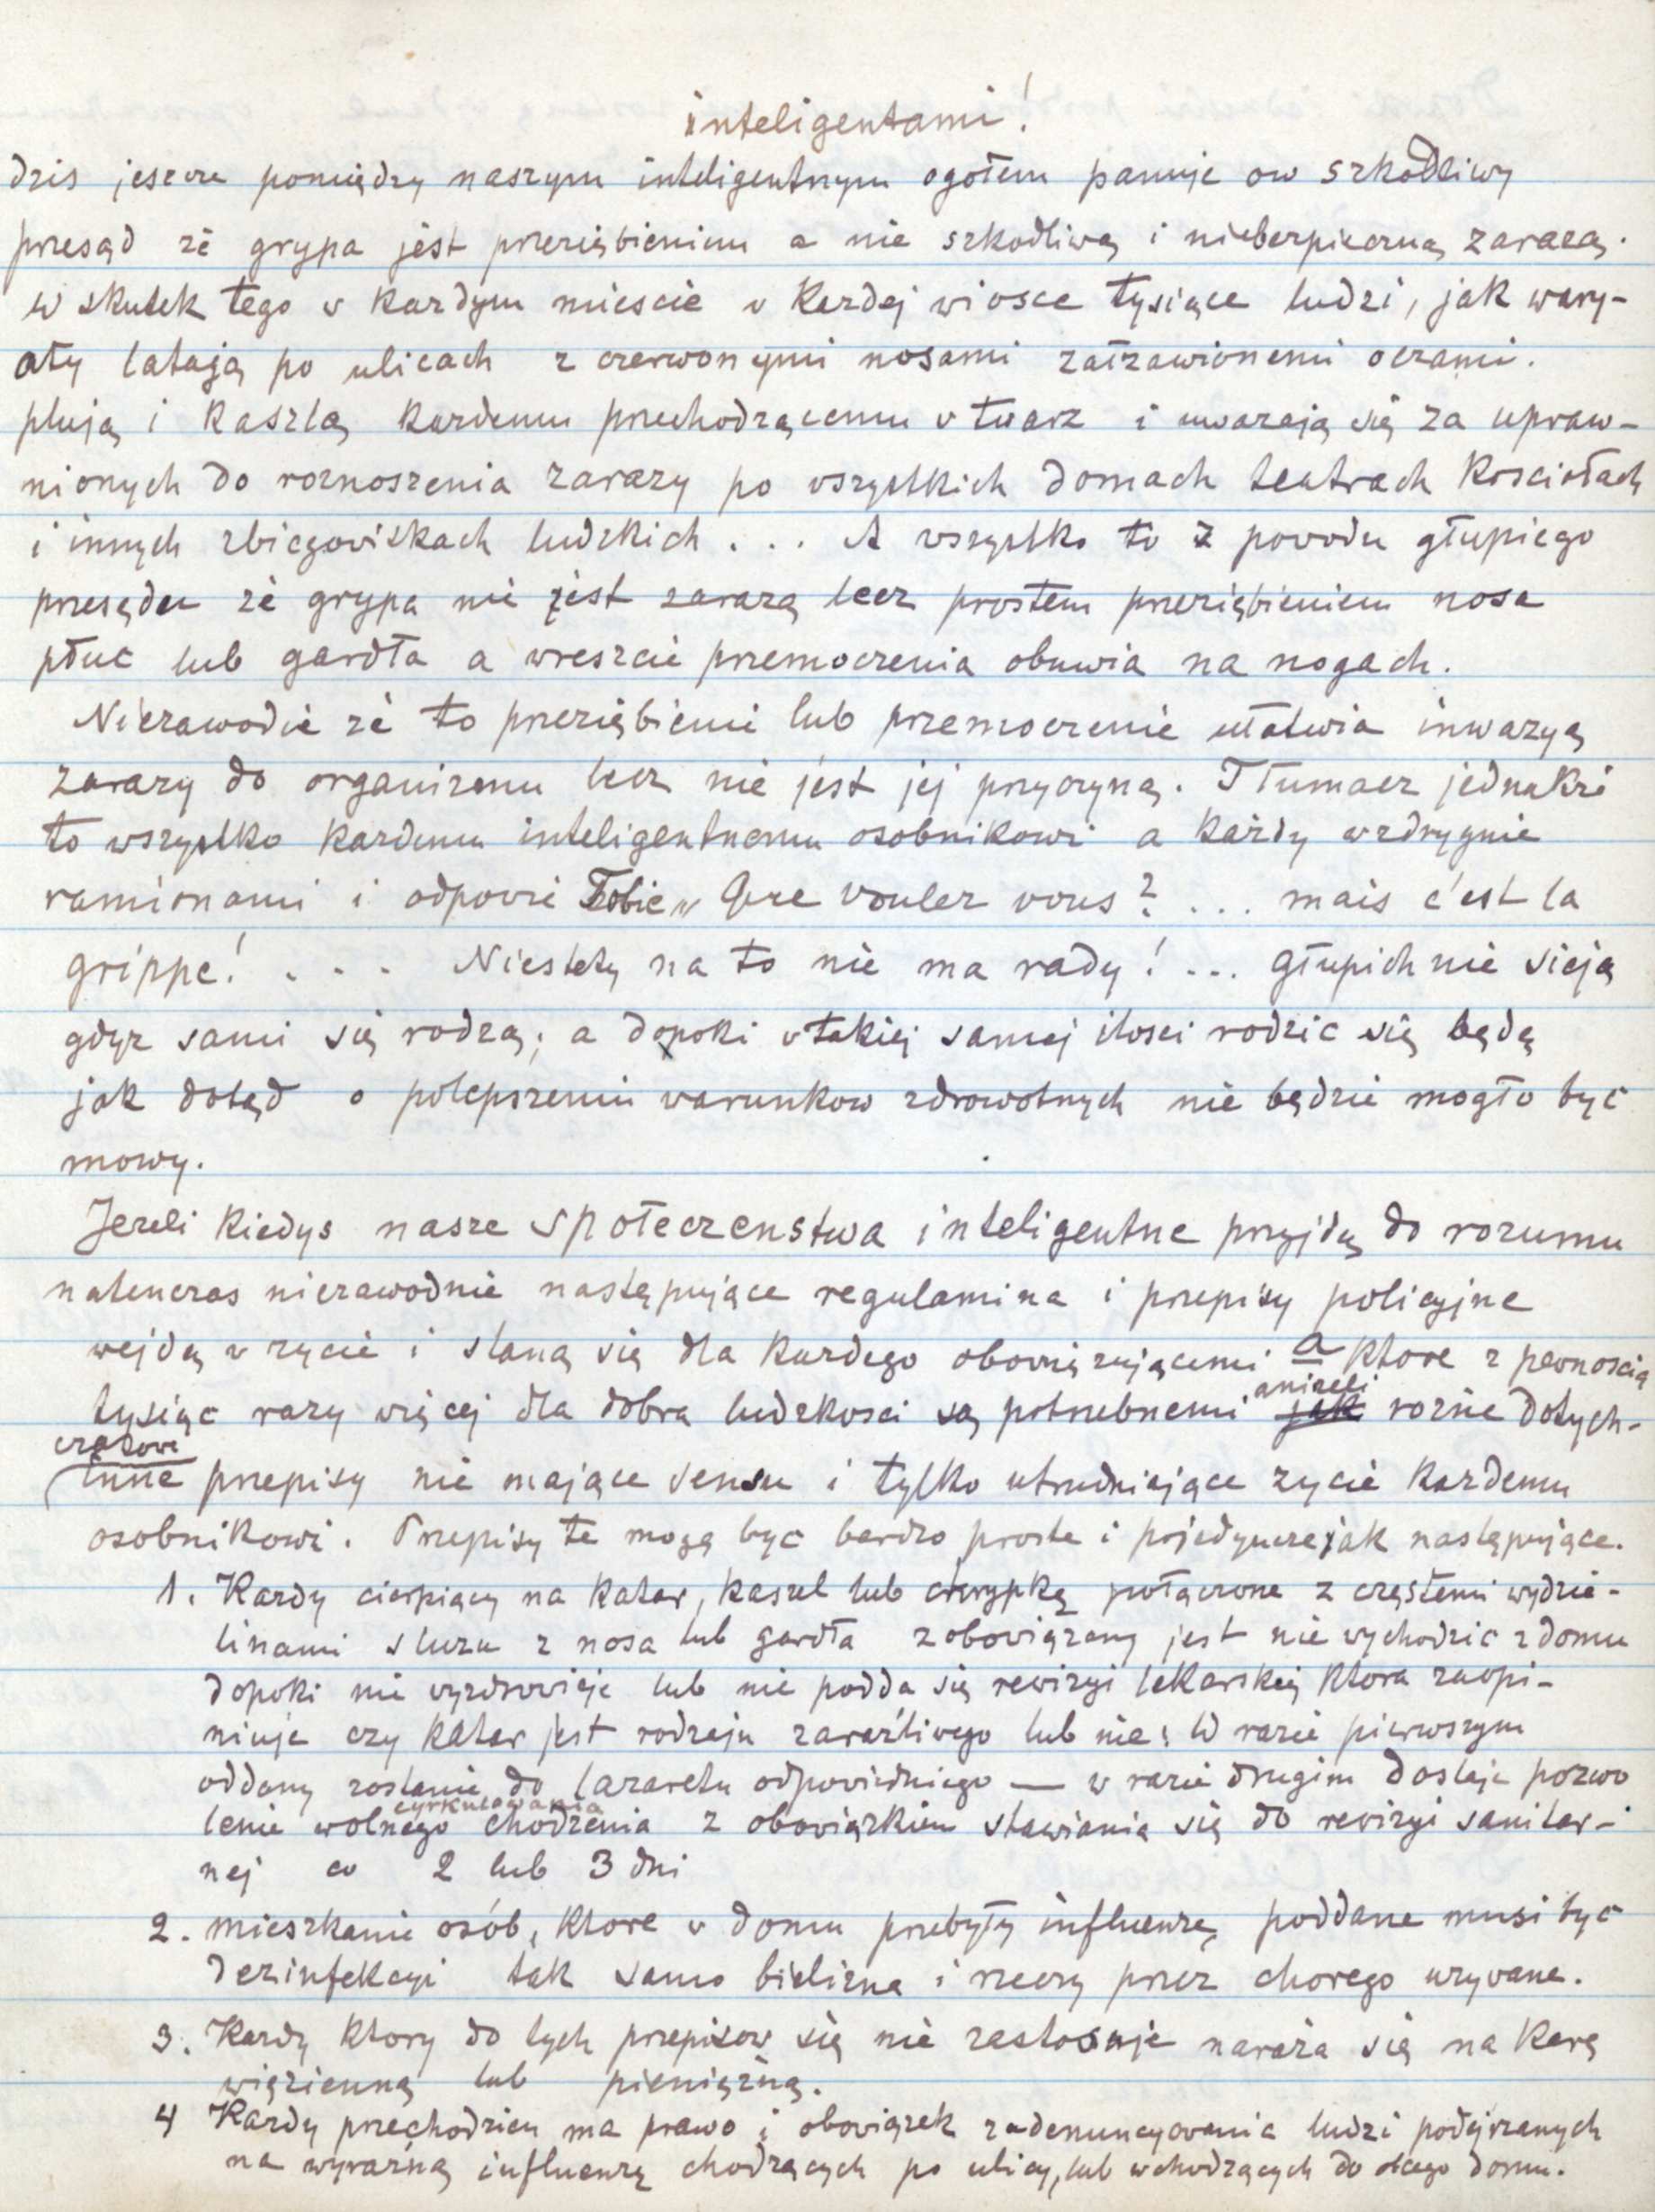 inteligentami!
dzis jeszcze pomiędzy naszym inteligentnym ogołem panuje ow szkodliwy
przesąd ze grypa jest przeziębieniem a nie szkodliwą i niebezpieczną zarazą.
w skutek tego w kazdym miescie w kazdej wiosce tysiące ludzi, jak wary-
aty latają po ulicach z czerwonymi nosami załzawionemi oczami.
plują i kaszlą kazdemu przechodzącemu w twarz i uwazają się za upraw-
nionych do roznoszenia zarazy po wszystkich domach teatrach kosciołach
i innych zbiegowiskach ludzkich . . . A wszystko to z powodu głupiego
przesądu ze grypa nie jest zarazą lecz prostem przeziębieniem nosa
płuc lub gardła a wreszcie przemoczenia obuwia na nogach.
Niezawodie ze to przeziębienie lub przemoczenie ułatwia inwazyą
zarazy do organizmu lecz nie jest jej przyczyną. Tłumacz jednakze
to wszystko kazdemu inteligentnemu osobnikowi a każdy wzdrygnie
ramionami i odpowie Tobie „ Que voulez vous? ... mais c'est la
grippe! . . . Niestety na to nie ma rady! ... Głupich nie sieją
gdyz sami się rodzą; a dopoki w takiej samej ilosci rodzic się będą
jak dotąd o polepszeniu warunkow zdrowotnych nie będzie mogło byc
mowy.
Jezeli kiedys nasze społeczenstwa inteligentne przyjdą do rozumu
natenczas niezawodnie następujące regulamina i przepisy policyjne
wejdą w zycie i staną się dla kazdego obowiązującemi a ktore z pewnoscią
tysiąc razy więcej dla dobra ludzkosci są potrzebnemi anizeli jak rozne dotych-
czasowe
inne przepisy nie mające sensu i tylko utrudniające zycie kazdemu
osobnikowi. Przepisy te mogą byc bardzo proste i pojedyncze jak następujące.
1. Kazdy cierpiący na katar, kaszel lub chrypkę połączone z częstemi wydzie-
linami sluzu z nosa lub gardła zobowiązany jest nie wychodzic z domu
dopoki nie wyzdrowieje lub nie podda się rewizyi lekarskiej ktora zaopi-
niuje czy katar jest rodzaju zaraźliwego lub nie; W razie pierwszym
oddany zostanie do lazaretu odpowiedniego — w razie drugim dostaje pozwo
cyrkulowania
lenie wolnego chodzenia z obowiązkiem stawiania się do rewizyi sanitar-
nej co 2 lub 3 dni
2. mieszkanie osób, ktore w domu przebyły influenzę, poddane musi byc
dezinfekcyi tak samo bielizna i rzeczy przez chorego uzywane.
3. Kazdy ktory do tych przepisow się nie zastosuje naraża się na karę
więzienną lub pieniężną.
4 Kazdy przechodzien ma prawo i obowiązek zadenuncyowania ludzi podejrzanych
na wyraźną influenzę chodzących po ulicy, lub wchodzących do domu.